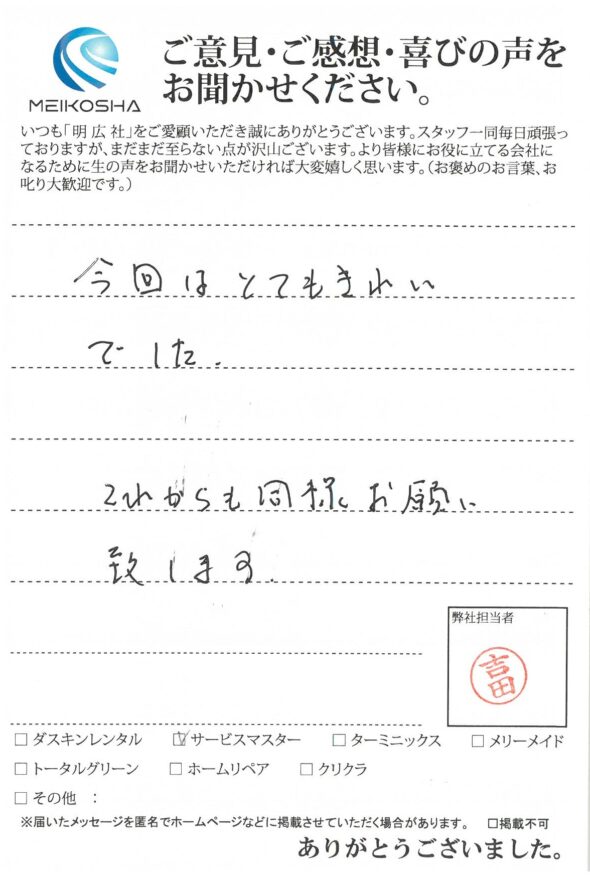 MEIKOSHA
ご意見・ご感想・喜びの声を
お聞かせください。
いつも「明広社」をご愛顧いただき誠にありがとうございます。スタッフ一同毎日頑張っ
ておりますが、まだまだ至らない点が沢山ございます。より皆様にお役に立てる会社に
なるために生の声をお聞かせいただければ大変嬉しく思います。（お褒めのお言葉、お
叱り大歓迎です。）
今回はとてもきれい
でした.
これからも同様にお願い
致します.
弊社担当者
吉田
☐ ダスキンレンタル ☑ サービスマスター ☐ ターミニックス ☐ メリーメイド
☐ トータルグリーン ☐ ホームリペア ☐ クリクラ
☐ その他 ：
※届いたメッセージを匿名でホームページなどに掲載させていただく場合があります。 ☐掲載不可
ありがとうございました。